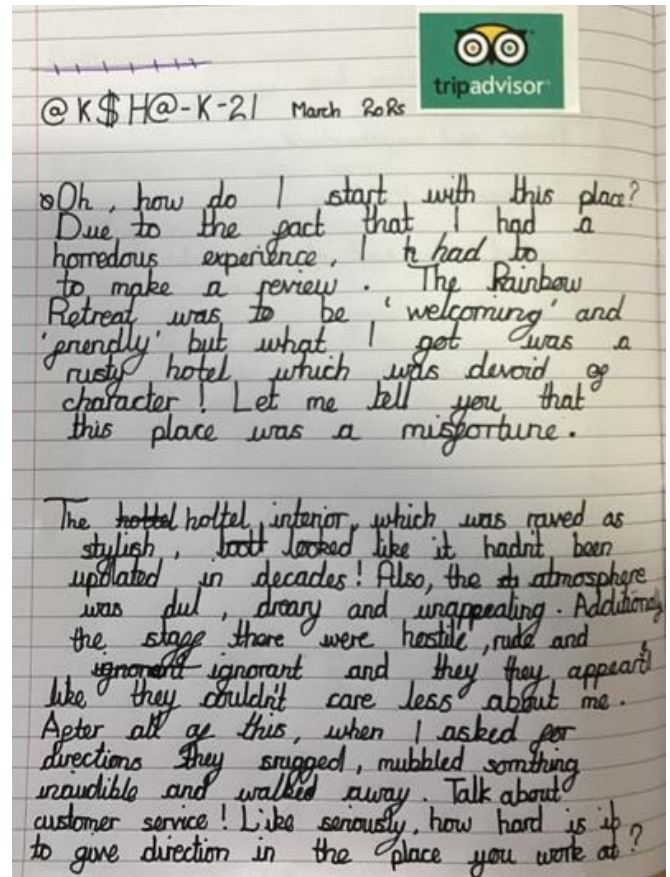 tripadvisor
@K$H@-K-21 March 20Rs
Oh, how do I start with this place?
Due to the fact that I had a
horredous experience, I had to
to make a review. The Rainbow
Retreat was to be 'welcoming' and
'friendly' but what I got was a
rusty hotel which was devoid of
character! Let me tell you that
this place was a misfortune.
The hottel holtel interior, which was raved as
stylish, loott looked like it hadn't been
updated in decades! Also, the atmosphere
was dul, dreary and unappealing. Additionaly
the staff there were hostile, rude and
ignorent ignorant and they they appeard
like they couldn't care less about me.
After all of this, when I asked for
directions they snigged, mubbled somthing
inaudible and walked away. Talk about
customer service! Like seriously, how hard is it
to give direction in the place you work at?